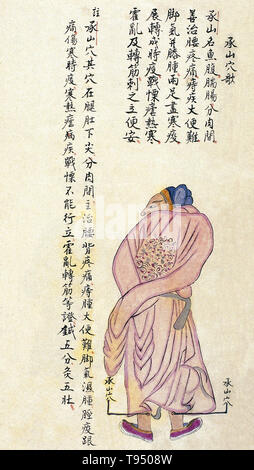 承山穴歌
承山名魚腹腨腸分肉間
善治腰疼痛痔疾大便難
脚氣并膝腫兩足盡寒疫
展轉成時疫戰慄瘧熱寒
霍亂及轉筋刺之立便安
註
承山穴其穴在腿肚下尖分肉間主治腰背疼痛痔腫大便難脚氣濕腫脛疫跟
痛傷寒時疫寒熱瘧病疾戰慄不能行立霍亂轉筋等證鍼五分灸五壯
承山穴
承山穴
alamy
Image ID: T9508W
www.alamy.com